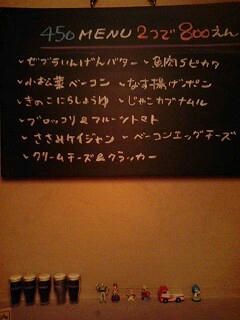 450 MENU 2つで800えん
✓ゼブラいんげんバター ✓魚肉Sピカタ
✓小松菜ベーコン ✓なす揚げポン
✓きのこにらしょうゆ ✓じゃこカブナムル
✓ブロッコリ&フルーツトマト
✓ささみケイジャン ✓ベーコンエッグチーズ
✓クリームチーズ&クラッカー